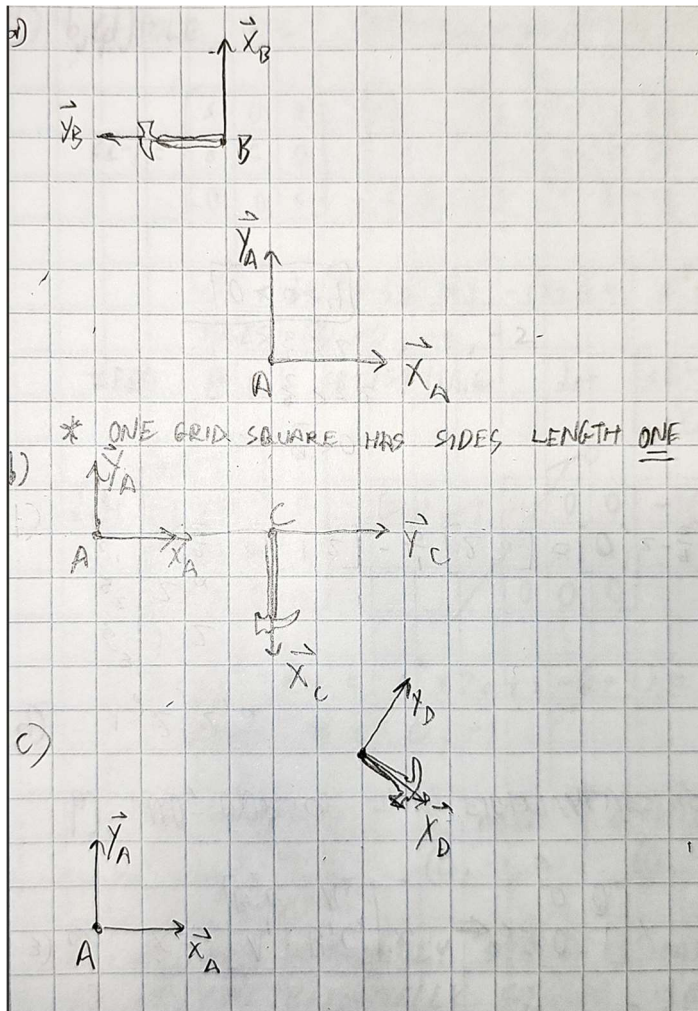 a)
X⃗_B
Y⃗_B
B
Y⃗_A
A
X⃗_A
* ONE GRID SQUARE HAS SIDES LENGTH ONE
b)
Y⃗_A
A
X⃗_A
C
Y⃗_C
X⃗_C
c)
Y_D
X⃗_D
Y⃗_A
A
X⃗_A